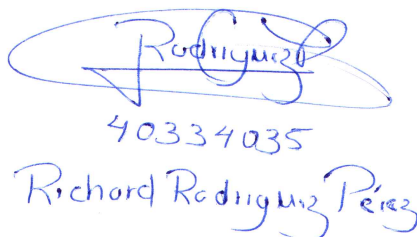 RodriguezP
40334035
Richard Rodriguez Pérez